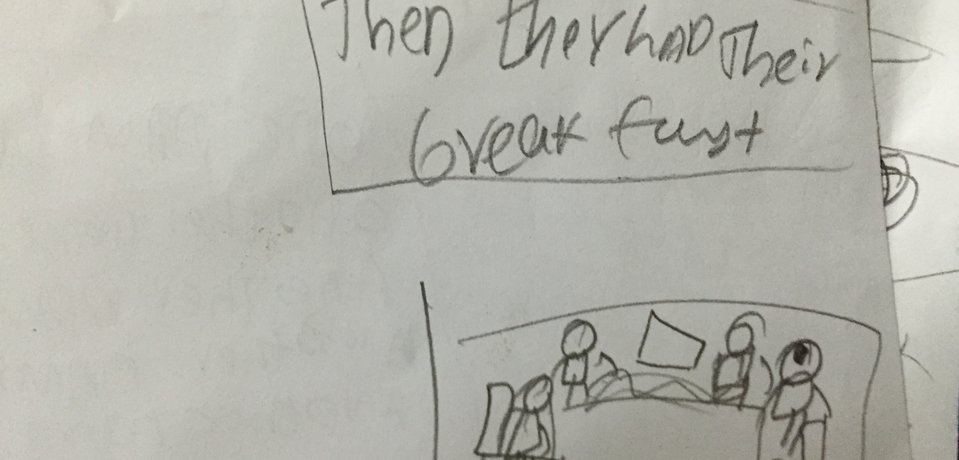 Then they had Their
break fast